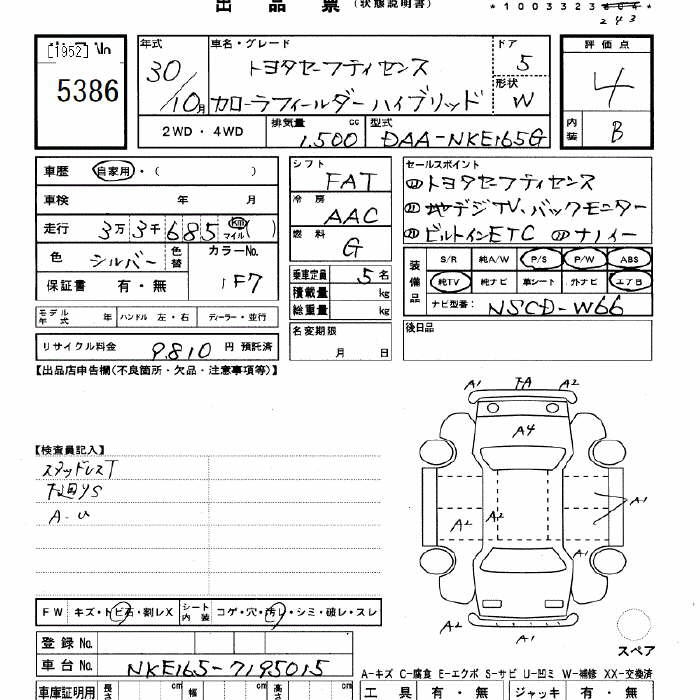 出品票(状態説明書)
*1003323
243
[1952] No
5386
年式 30/10月
車名・グレード トヨタセーフティセンス
カローラフィールダーハイブリッド
ドア 5
形状 W
2WD・4WD 排気量 1,500 cc 型式 DAA-NKE165G
評価点 4
内装 B
車歴 自家用・( )
車検 年 月
走行 3万3千685 km マイル ( )
色 シルバー 色替 カラーNo. 1F7
保証書 有・無
モデル年式 年 ハンドル 左・右 ディーラー・並行
リサイクル料金 9,810 円 預託済
シフト FAT
冷房 AAC
燃料 G
乗車定員 5名
積載量 kg
総重量 kg
名変期限
月 日
セールスポイント
トヨタセーフティセンス
地デジTV、バックモニター
ビルトインETC ナノイー
装備品 S/R 純A/W P/S P/W ABS
純TV 純ナビ 革シート 外ナビ エアB
ナビ型番: NSCD-W66
後日品
【出品店申告欄(不良箇所・欠品・注意事項等)】
【検査員記入】
スタッドレスT
下廻りS
A・U
A1 TA A2
A4
A1
A2 A2
A1
A2 A1
スペア
FW キズ・トビ石・割レX シート内装 コゲ・穴・汚レ・シミ・破レ・スレ
登録No.
車台No. NKE165-7195015
A-キズ C-腐食 E-エクボ S-サビ U-凹ミ W-補修 XX-交換済
車庫証明用 長さ cm 幅 cm 高さ cm 工具 有・無 ジャッキ 有・無